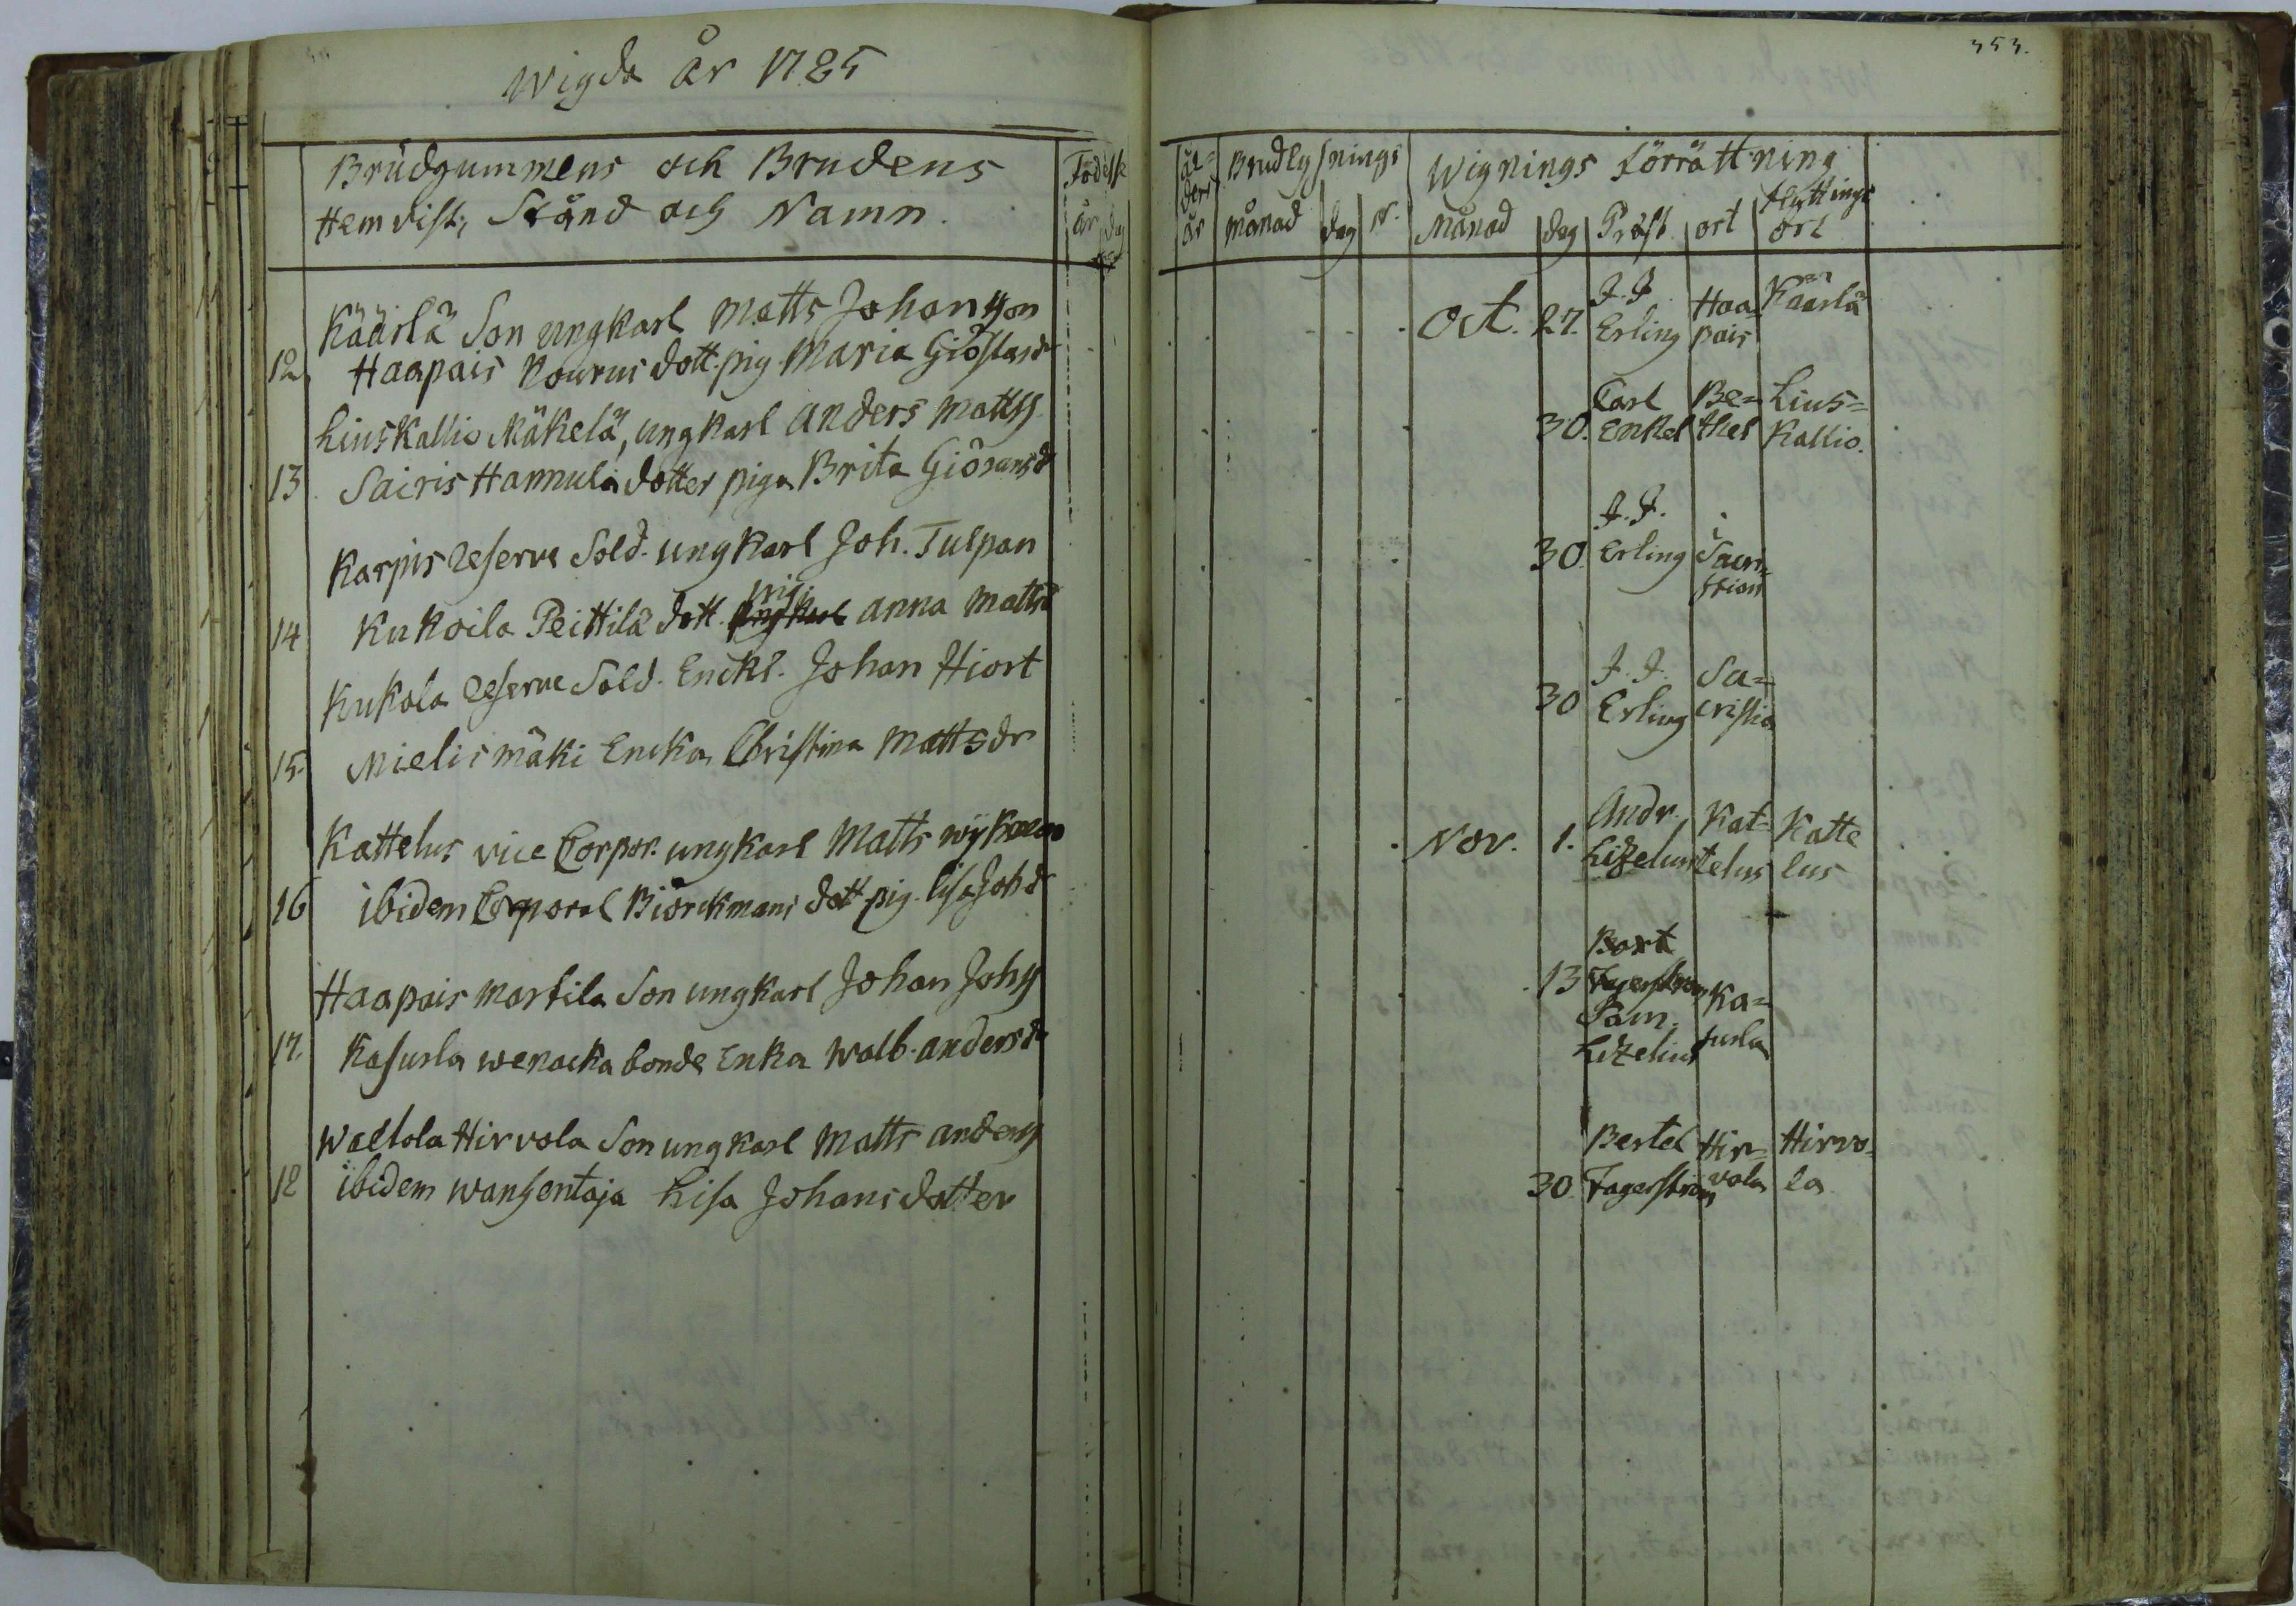 Wigda år 1785
353.
Brudgummens och Brudens
Hemvist, Stånd och Namn.
Födelse
år dag
Ålders år
Brudlysnings
månad dag N.
Wignings Förrättning
Månad dag Präst ort Flyttings ort
Käärlä Son ungkarl Matts Johansson
12 Haapais Kourus dott. pig. Maria Giöstasdr
Oct. 27. J. J. Erling Haapais Käärlä
Liuskallio Mäkelä, ungkarl Anders Mattss.
13 Sairis Hannula dotter piga Brita Giöransdr
30. Carl Enkel Bethel Liuskallio.
Karpis reserve Sold. ungkarl Joh. Tulpan
14 Kukoila Peittilä dott. pig. Anna Mattsd
30. J. J. Erling i Sacristian
Kukola reserve Sold. Enckl. Johan Hiort
15. Mielismäki Encka Christina Mattsdr
30 J. J. Erling Sacristia
Kattelus vice Corpor. ungkarl Matts
16 ibidem Corporal Biörckmans dott pig. Lisa Johd
Nov. 1. Andr. Lizelius Kattelus Kattelus
Haapais Martila Son ungkarl Johan Johss
17. Kasurla wenacka bonde Enka Walb. Andersdr
13 Fagerström Sam. Lizelius Kasurla
Waltola Hirvola Son ungkarl Matts Anderss
18 ibidem wansentaja Lisa Johans dotter
30 Bertel Fagerström Hirvola Hirvola